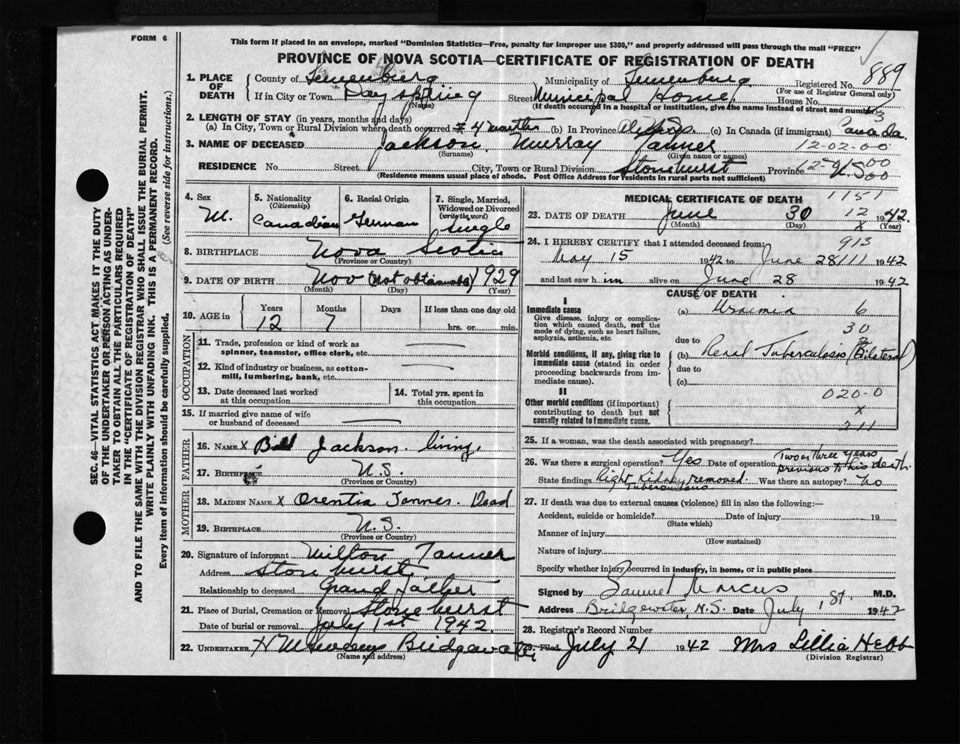 FORM 6
This form if placed in an envelope, marked "Dominion Statistics—Free, penalty for improper use $300," and properly addressed will pass through the mail "FREE"
PROVINCE OF NOVA SCOTIA—CERTIFICATE OF REGISTRATION OF DEATH
889
1. PLACE OF DEATH County of Lunenburg Municipality of Lunenburg Registered No.
(For use of Registrar General only)
If in City or Town Dayspring Street Municipal Home House No.
(Name) (If death occurred in a hospital or institution, give the name instead of street and number)
2. LENGTH OF STAY (in years, months and days)
(a) In City, Town or Rural Division where death occurred 4 months (b) In Province (c) In Canada (if immigrant) Canada
3. NAME OF DECEASED Jackson, Murray Tanner 12-02-00
(Surname) (Given name or names)
RESIDENCE No. Street City, Town or Rural Division Stonehurst Province N.S.
(Residence means usual place of abode. Post Office Address for residents in rural parts not sufficient)
4. Sex M.
5. Nationality (Citizenship) Canadian
6. Racial Origin German
7. Single, Married, Widowed or Divorced (write the word) single
8. BIRTHPLACE Nova Scotia
(Province or Country)
9. DATE OF BIRTH Nov (not obtainable) 1929
(Month) (Day) (Year)
10. AGE in Years 12 Months 7 Days If less than one day old hrs. or min.
OCCUPATION
11. Trade, profession or kind of work as spinner, teamster, office clerk, etc.
12. Kind of industry or business, as cotton-mill, lumbering, bank, etc.
13. Date deceased last worked at this occupation
14. Total yrs. spent in this occupation
15. If married give name of wife or husband of deceased
FATHER
16. NAME X Bill Jackson living,
17. BIRTHPLACE N.S.
(Province or Country)
MOTHER
18. MAIDEN NAME X Orentia Tanner. Dead
19. BIRTHPLACE N.S.
(Province or Country)
20. Signature of informant Milton Tanner
Address Stonehurst
Relationship to deceased Grand Father
21. Place of Burial, Cremation or Removal Stonehurst
Date of burial or removal July 1st 1942.
22. UNDERTAKER Bridgewater
(Name and address)
MEDICAL CERTIFICATE OF DEATH 1151
23. DATE OF DEATH June 30 12 1942.
(Month) (Day) (Year)
24. I HEREBY CERTIFY that I attended deceased from: 913
May 15 1942 to June 28/111 1942
and last saw him alive on June 28 1942
CAUSE OF DEATH
I
Immediate cause
Give disease, injury or complication which caused death, not the mode of dying, such as heart failure, asphyxia, asthenia, etc.
(a) Uraemia 6
30
due to
Morbid conditions, if any, giving rise to immediate cause (stated in order proceeding backwards from immediate cause).
(b) Renal Tuberculosis (Bilateral)
due to
(c)
II
Other morbid conditions (if important) contributing to death but not causally related to immediate cause.
020-0
X
211
25. If a woman, was the death associated with pregnancy?
26. Was there a surgical operation? Yes Date of operation Two or three years previous to his death.
State findings Right kidney removed. Tuberculous Was there an autopsy? no
27. If death was due to external causes (violence) fill in also the following:
Accident, suicide or homicide? Date of injury 19
(State which)
Manner of injury
(How sustained)
Nature of injury
Specify whether injury occurred in industry, in home, or in public place
Signed by Samuel Marcus M.D.
Address Bridgewater, N.S. Date July 1st. 1942
28. Registrar's Record Number
29. Filed July 21 1942 Mrs Lillia Hebb
(Division Registrar)
SEC. 46—VITAL STATISTICS ACT MAKES IT THE DUTY
OF THE UNDERTAKER OR PERSON ACTING AS UNDER-
TAKER TO OBTAIN ALL THE PARTICULARS REQUIRED
IN THE "CERTIFICATE OF REGISTRATION OF DEATH"
AND TO FILE THE SAME WITH THE DIVISION REGISTRAR WHO SHALL ISSUE THE BURIAL PERMIT.
WRITE PLAINLY WITH UNFADING INK. THIS IS A PERMANENT RECORD.
Every item of information should be carefully supplied. (See reverse side for instructions.)